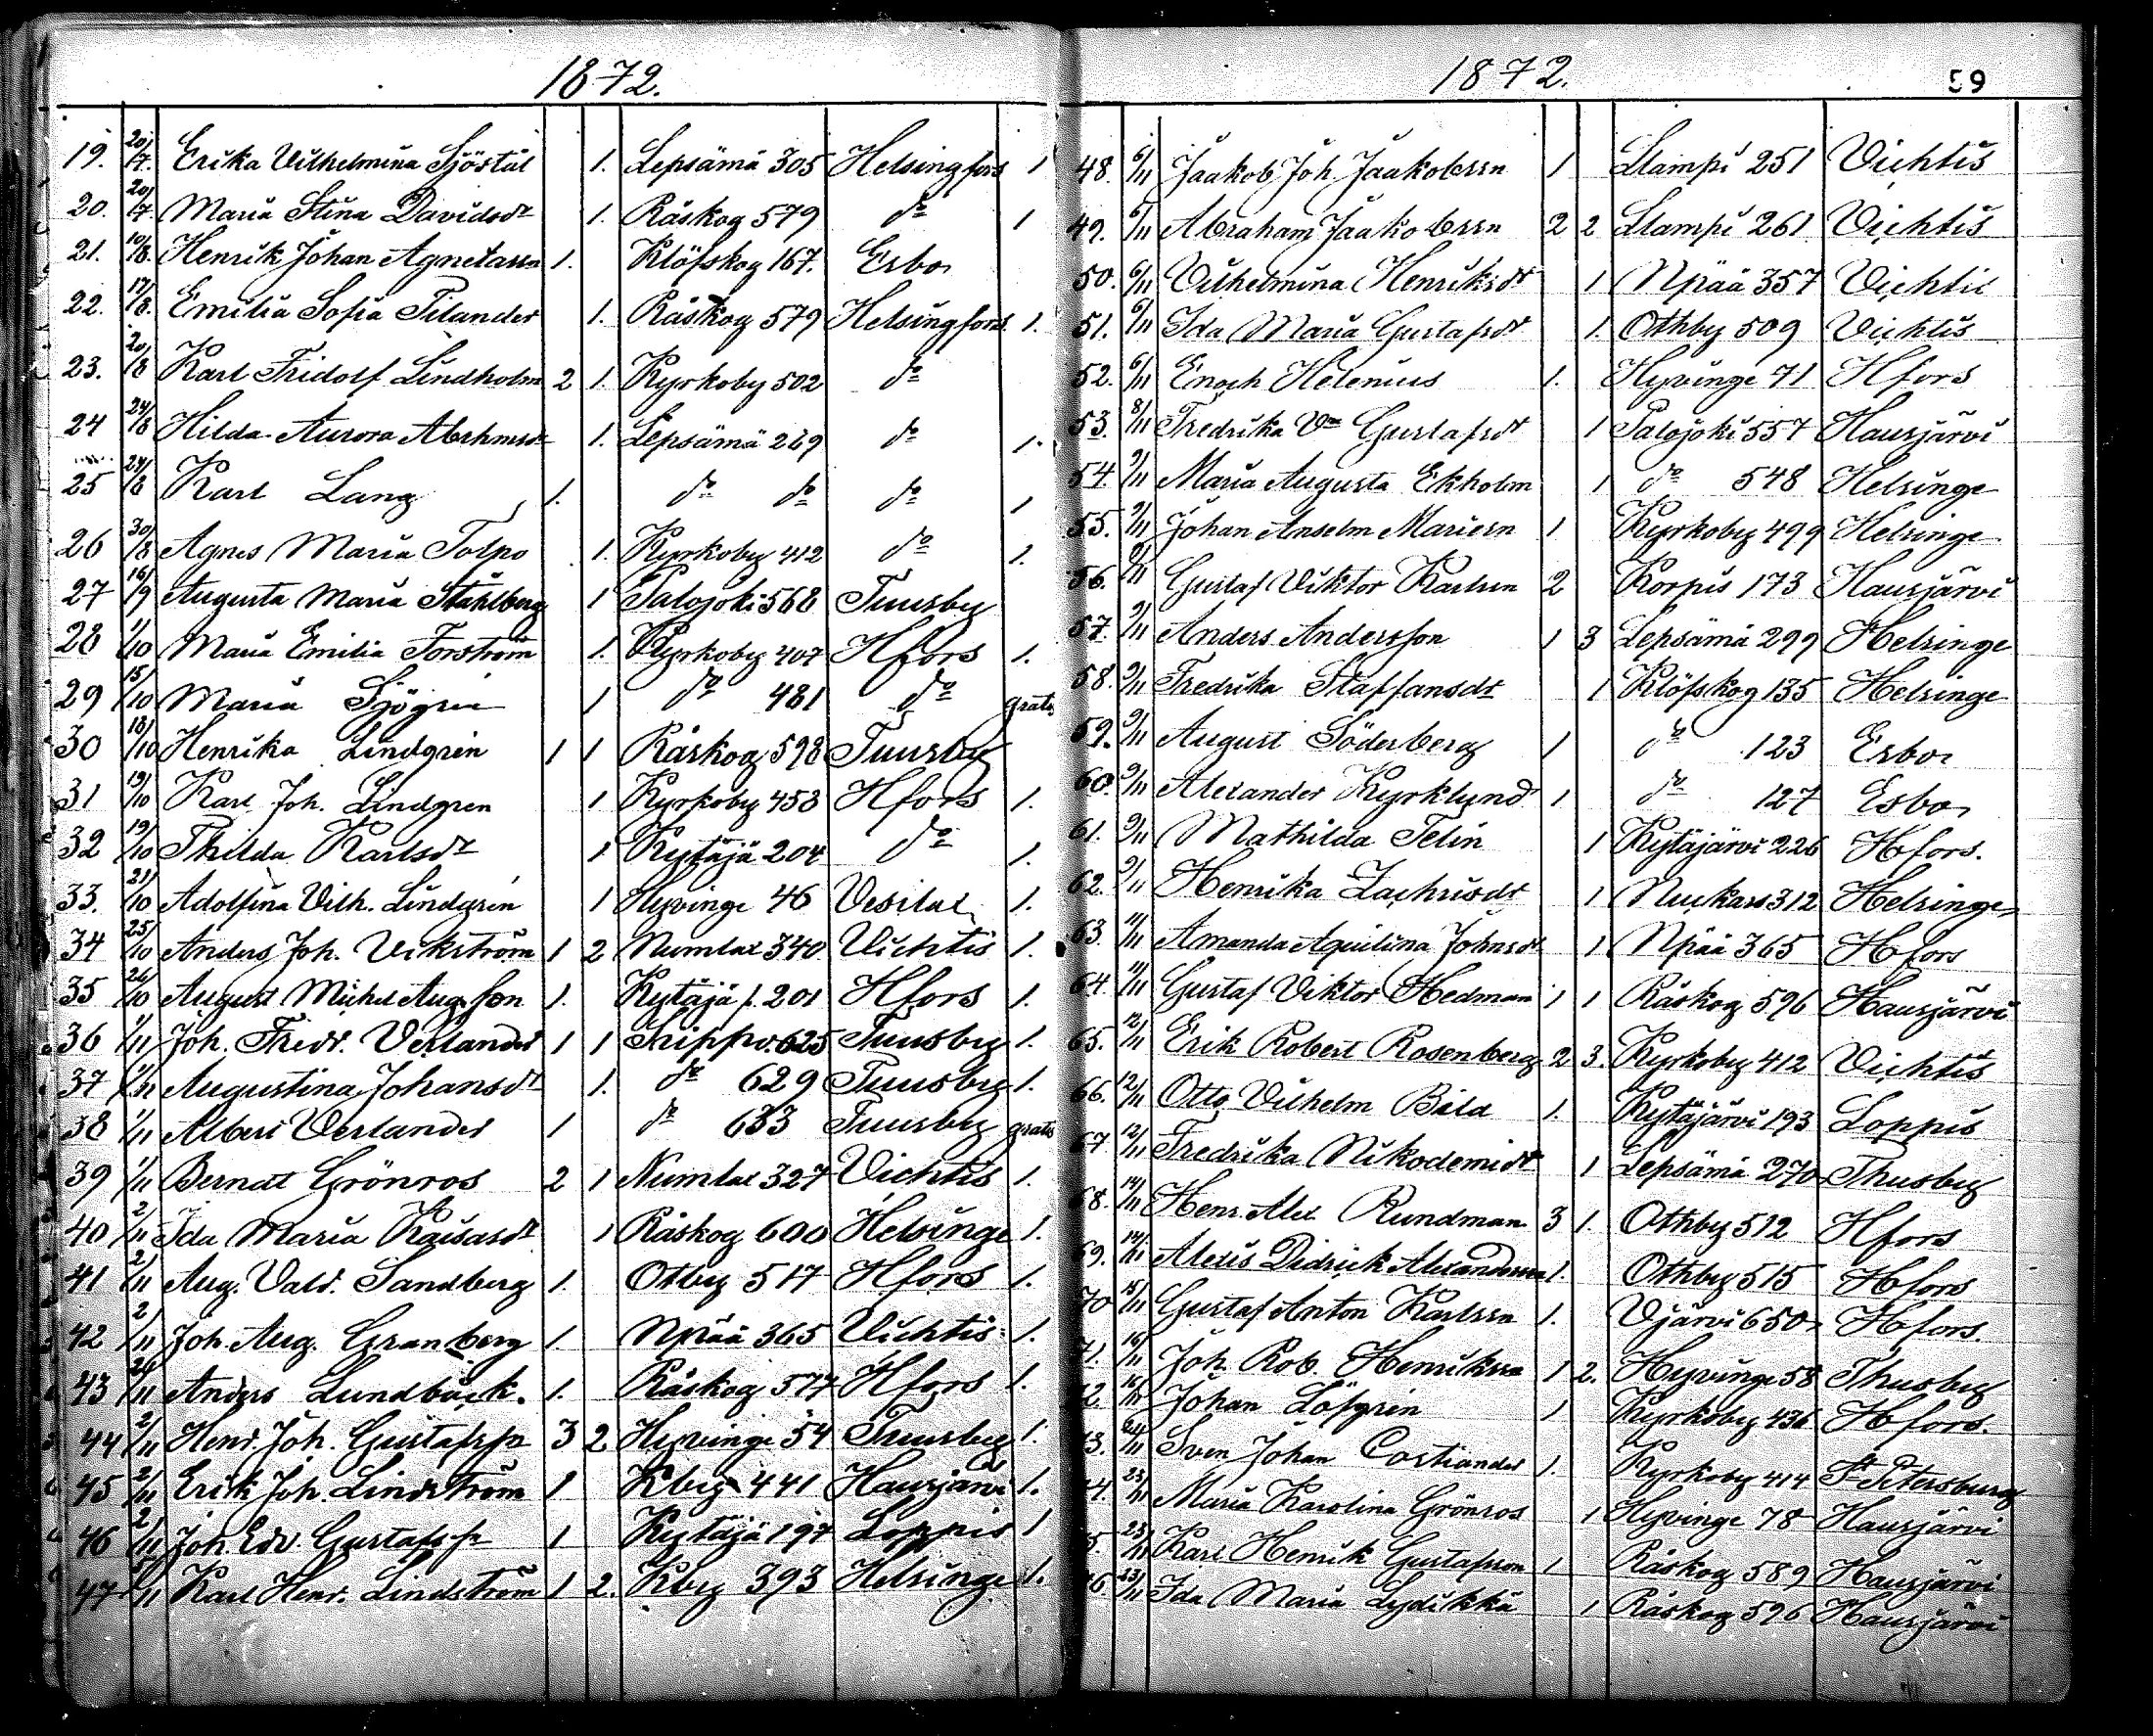 1872.
19. 20/7. Erika Vilhelmina Sjöstål 1. Lepsämä 305 Helsingfors 1
20. 20/7 Maria Stina Davidsdr 1. Råskog 579 do 1
21. 10/8. Henrik Johan Agnetassn 1. Klöfskog 167. Esbo
22. 17/8. Emilia Sofia Silander 1. Råskog 579 Helsingfors 1.
23. 20/8 Karl Fridolf Lindholm 2 1. Kyrkoby 502 do
24 24/8 Hilda Aurora Abrhmsdr 1. Lepsämä 269 do 1.
25 24/8 Karl Lang 1. do do do 1
26 30/8 Agnes Maria Tolpo 1. Kyrkoby 412 do 1.
27 16/9 Augusta Maria Ståhlberg 1 Palojoki 568 Tuusby
28 1/10 Maria Emilia Forström 1. Kyrkoby 407 Hfors 1.
29 15/10 Maria Sjögrén 1 do 481 do gratis
30 18/10 Henrika Lindgrén 1 1 Råskog 598 Tuusby
31 19/10 Karl Joh. Lindgren 1 Kyrkoby 453 Hfors 1.
32 19/10 Thilda Karlsdr 1 Kytäjä 204 do 1.
33. 21/10 Adolfina Vilh. Lindgrén 1 Hyvinge 46 Vesilax 1.
34 25/10 Anders Joh. Vikström 1 2 Numlax 340 Vichtis 1.
35 26/10 August Michel Aug.son 1. Kytäjä 201 Hfors 1.
36 1/11 Joh. Fredr. Verlander 1 1 Trippo. 625 Tuusby 1.
37 1/11 Augustina Johansdr 1. do 629 Tuusby 1.
38 1/11 Albert Verlander 1 do 633 Tuusby gratis
39 1/11 Berndt Grönros 2 1 Numlax 327 Vichtis 1.
40 2/11 Ida Maria Kaisasdr 1 Råskog 600 Helsinge 1.
41 2/11 Aug. Vald. Sandberg 1. Otby 517 Hfors 1.
42 2/11 Joh. Aug. Granberg 1. Npää 365 Vichtis 1.
43 2/11 Anders Lundbäck. 1. Råskog 577 Hfors 1.
44 2/11 Henr. Joh. Gustafsn 3 2 Hyvinge 54 Tuusby 1.
45 2/11 Erik Joh. Lindström 1 Kby 441 Hausjärvi 1.
46 2/11 Joh. Edv. Gustafsn 1 Kytäjä 197 Loppis 1
47 5/11 Karl Henr. Lindström 1 2. Kby 393 Helsinge 1.
1872. 59
48. 6/11 Jaakob Joh. Jaakobssn 1 Stampi 251 Vichtis
49. 6/11 Abraham Jaakobssn 2 2 Stampi 261 Vichtis
50. 6/11 Vilhelmina Henriksdr 1 Npää 357 Vichtis
51. 6/11 Ida Maria Gustafsdr 1. Othby 509 Vichtis
52. 6/11 Enoch Helenius 1. Hyvinge 71 Hfors
53. 8/11 Fredrika Vna Gustafsdr 1 Palojoki 557 Hausjärvi
54 9/11 Maria Augusta Ekholm 1 do 548 Helsinge
55. 9/11 Johan Anselm Mariesn 1 Kyrkoby 499 Helsinge
56. 9/11 Gustaf Viktor Karlsn 2 Korpis 173 Hausjärvi
57. 9/11 Anders Andersson 1 3 Lepsämä 299 Helsinge
58. 9/11 Fredrika Staffansdr 1 Klöfskog 135 Helsinge
59. 9/11 August Söderberg 1 do 123 Esbo
60. 9/11 Alexander Kyrklund 1 do 127 Esbo
61. 9/11 Mathilda Telin 1 Kytäjärvi 226 Hfors.
62. 9/11 Henrika Zachrisdr 1 Nuckars 312 Helsinge
63. 11/11 Amanda Aquilina Johnsdr 1 Npää 365 Hfors
64. 11/11 Gustaf Viktor Hedman 1 1 Råskog 596 Hausjärvi
65. 12/11 Erik Robert Rosenberg 2 3. Kyrkoby 412 Vichtis
66. 12/11 Otto Vilhelm Bild 1. Kytäjärvi 193 Loppis
67 12/11 Fredrika Nikodemidr 1 Lepsämä 270 Thusby
68. 14/11 Henr. Alex Rundman 3 1. Othby 512 Hfors
69. 14/11 Alexis Didrick Alexandersn 1. Othby 515 Hfors
70 15/11 Gustaf Anton Karlssn 1. Vjärvi 650 Hfors.
71. 16/11 Joh. Rob. Henrikssn 1 2. Hyvinge 58 Thusby
72. 16/11 Johan Löfgrén 1 Kyrkoby 436 Hfors.
73. Sven Johan Costiander 1. Kyrkoby 414 St Petersburg
74. 23/11 Maria Karolina Grönros 1 Hyvinge 78 Hausjärvi
75. 23/11 Karl Henrik Gustafsson 1 Råskog 589 Hausjärvi
76 23/11 Ida Maria Lydikkä 1 Råskog 596 Hausjärvi